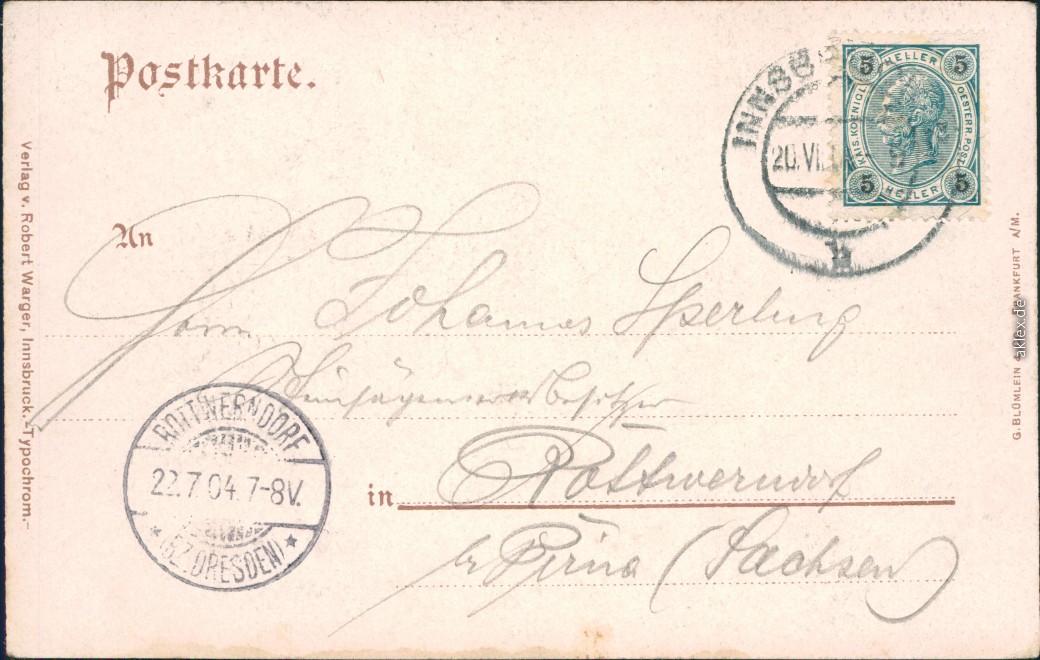 Postkarte.
5 HELLER 5
KAIS. KOENIGL. OESTERR. POST.
5 HELLER 5
INNSB
20.VII
An
Herrn Johannes Sperling
Steinsägewerksbesitzer
in Rottwerndorf
b/ Pirna (Sachsen)
ROTTWERNDORF
22.7.04.7-8V.
* (BZ.DRESDEN) *
Verlag v. Robert Warger, Innsbruck.-Typochrom.-
G. BLÜMLEIN FRANKFURT A/M.
aklex.de